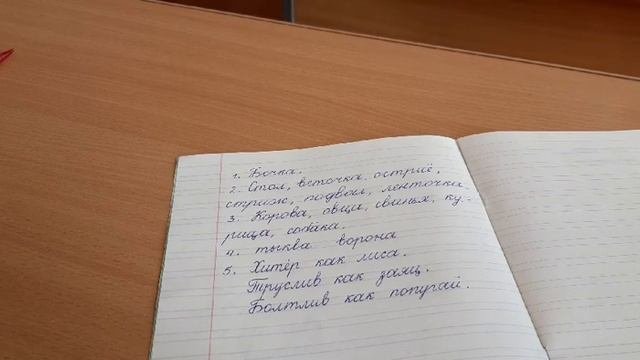 1. Бочка.
2. Стол, веточка, остриё,
стриж, подвал, ленточка
3. Корова, овца, свинья, ку-
рица, собака.
4. тыква ворона
5. Хитёр как лиса.
Труслив как заяц.
Болтлив как попугай.